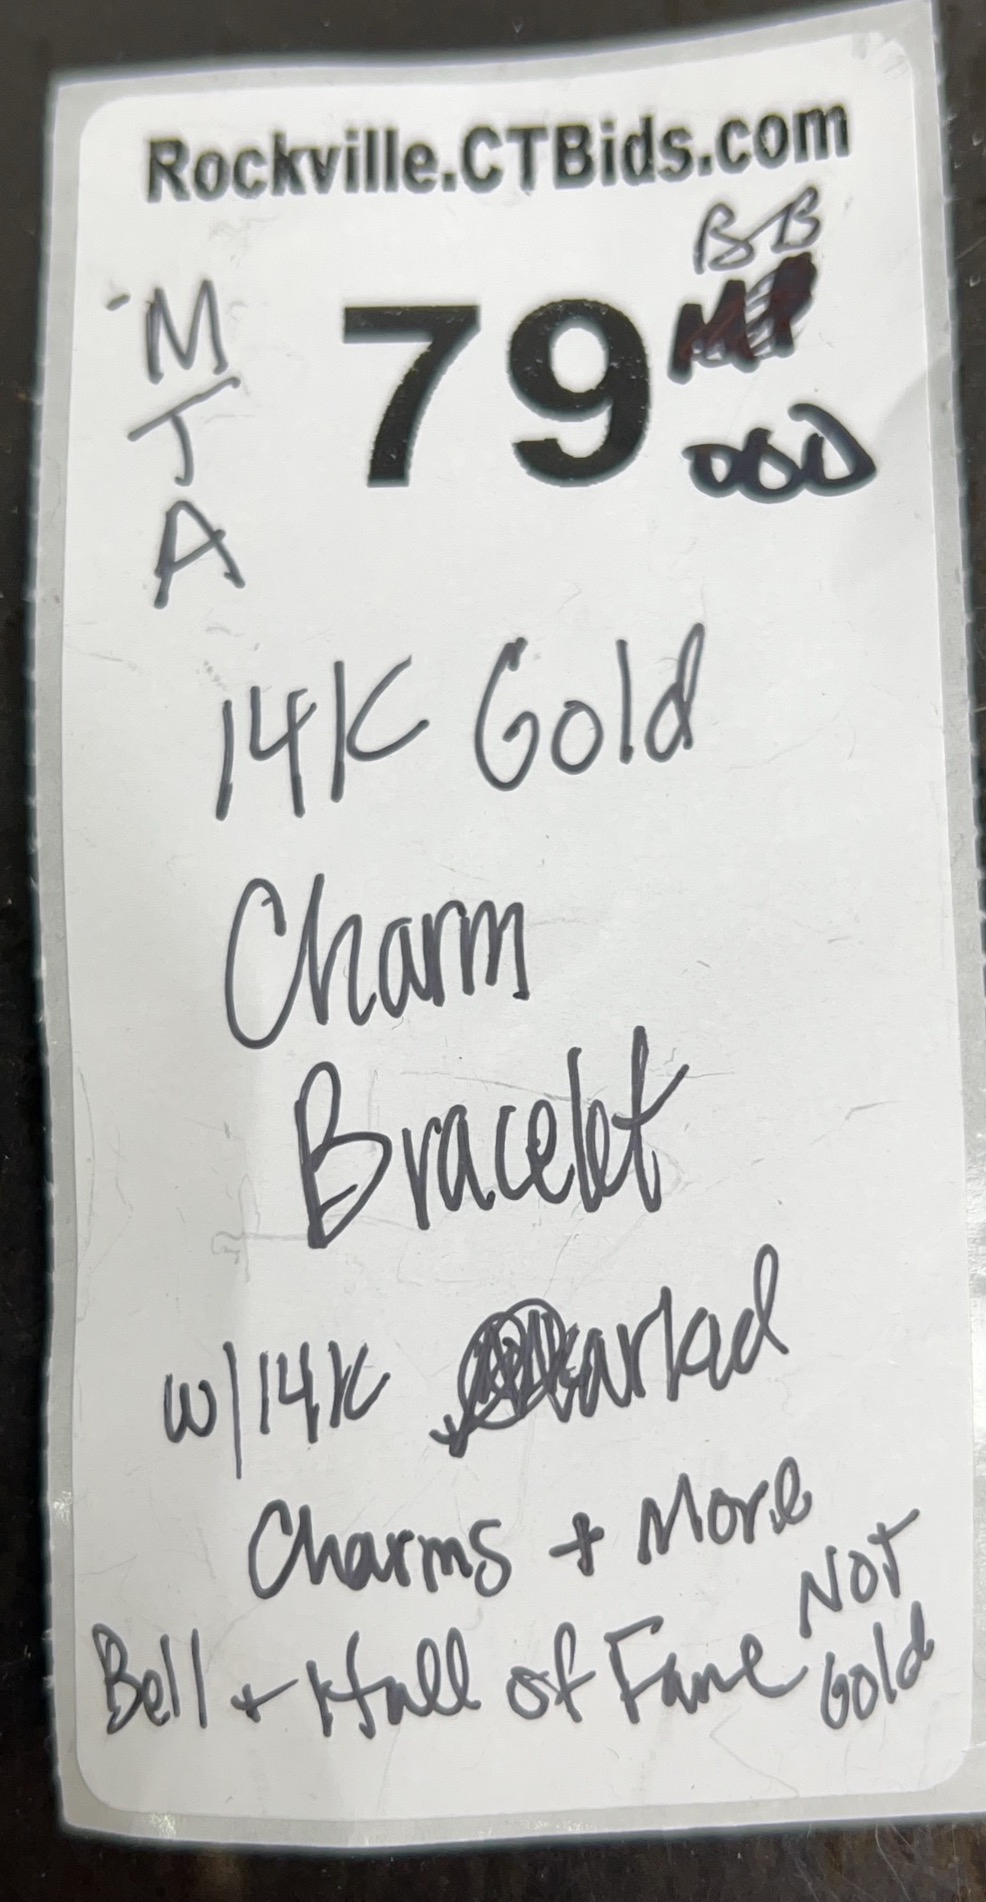 Rockville.CTBids.com
BB
M
J
A
79
14K Gold
Charm
Bracelet
w/14K Marked
Charms + More
Bell + Hall of Fame Not
Gold